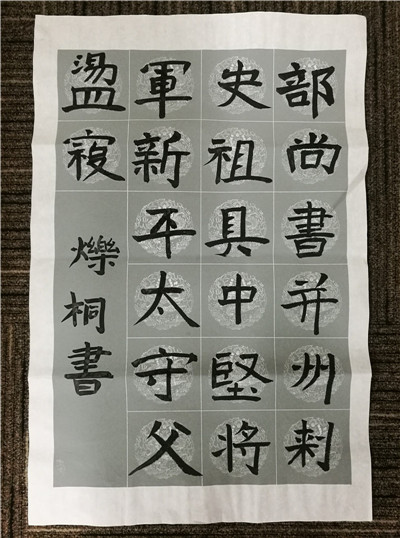 部尚書并州刺
史祖具中堅将
軍新平太守父
盪寇
爍桐書